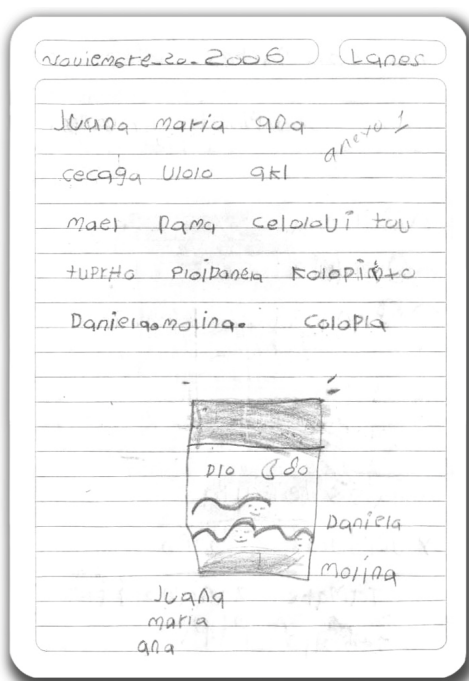 noviembre-20-2006 Lanes
Juana maria ana
anexo 1
cecaga Ulolo akl
mael Pama celoloUi tou
Ploipanela
Daniela.molina. ColoPla
Plo
Daniela
molina
Juana
maria
ana